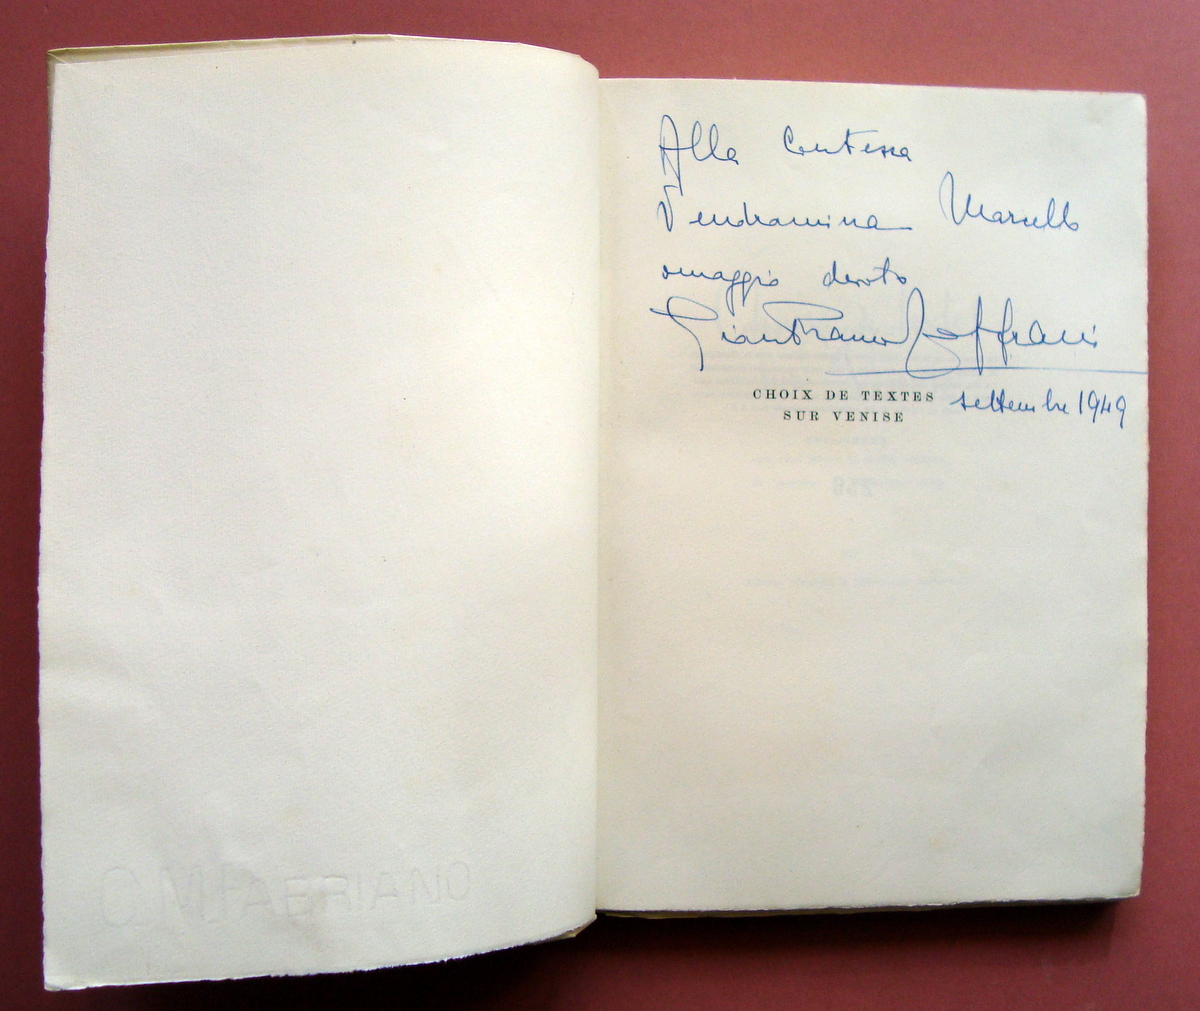 C.M.FABRIANO
Alla Contessa
Vendramina Marcello
omaggio devoto
Gianfranco
CHOIX DE TEXTES
SUR VENISE
settembre 1949